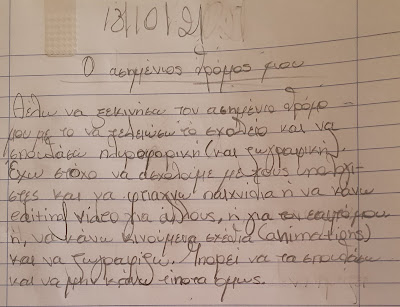 13/10/21
Ο ασημένιος δρόμος μου
Θέλω να ξεκινήσω τον ασημένιο δρόμο
μου με το να τελειώσω το σχολείο και να
σπουδάσω πληροφορική (και ζωγραφική).
Έχω στόχο να ασχολούμε με τους υπολογι-
στές και να φτιάχνω παιχνίδια ή να κάνω
editing video για άλλους, ή για τον εαυτό μου
ή, να κάνω κινούμενα σχέδια (animations)
και να ζωγραφίζω. Μπορεί να τα σπουδάσω
και να μην κάνω τίποτα όμως.